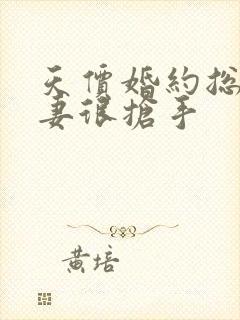 天價婚約总
妻很搶手
黃培